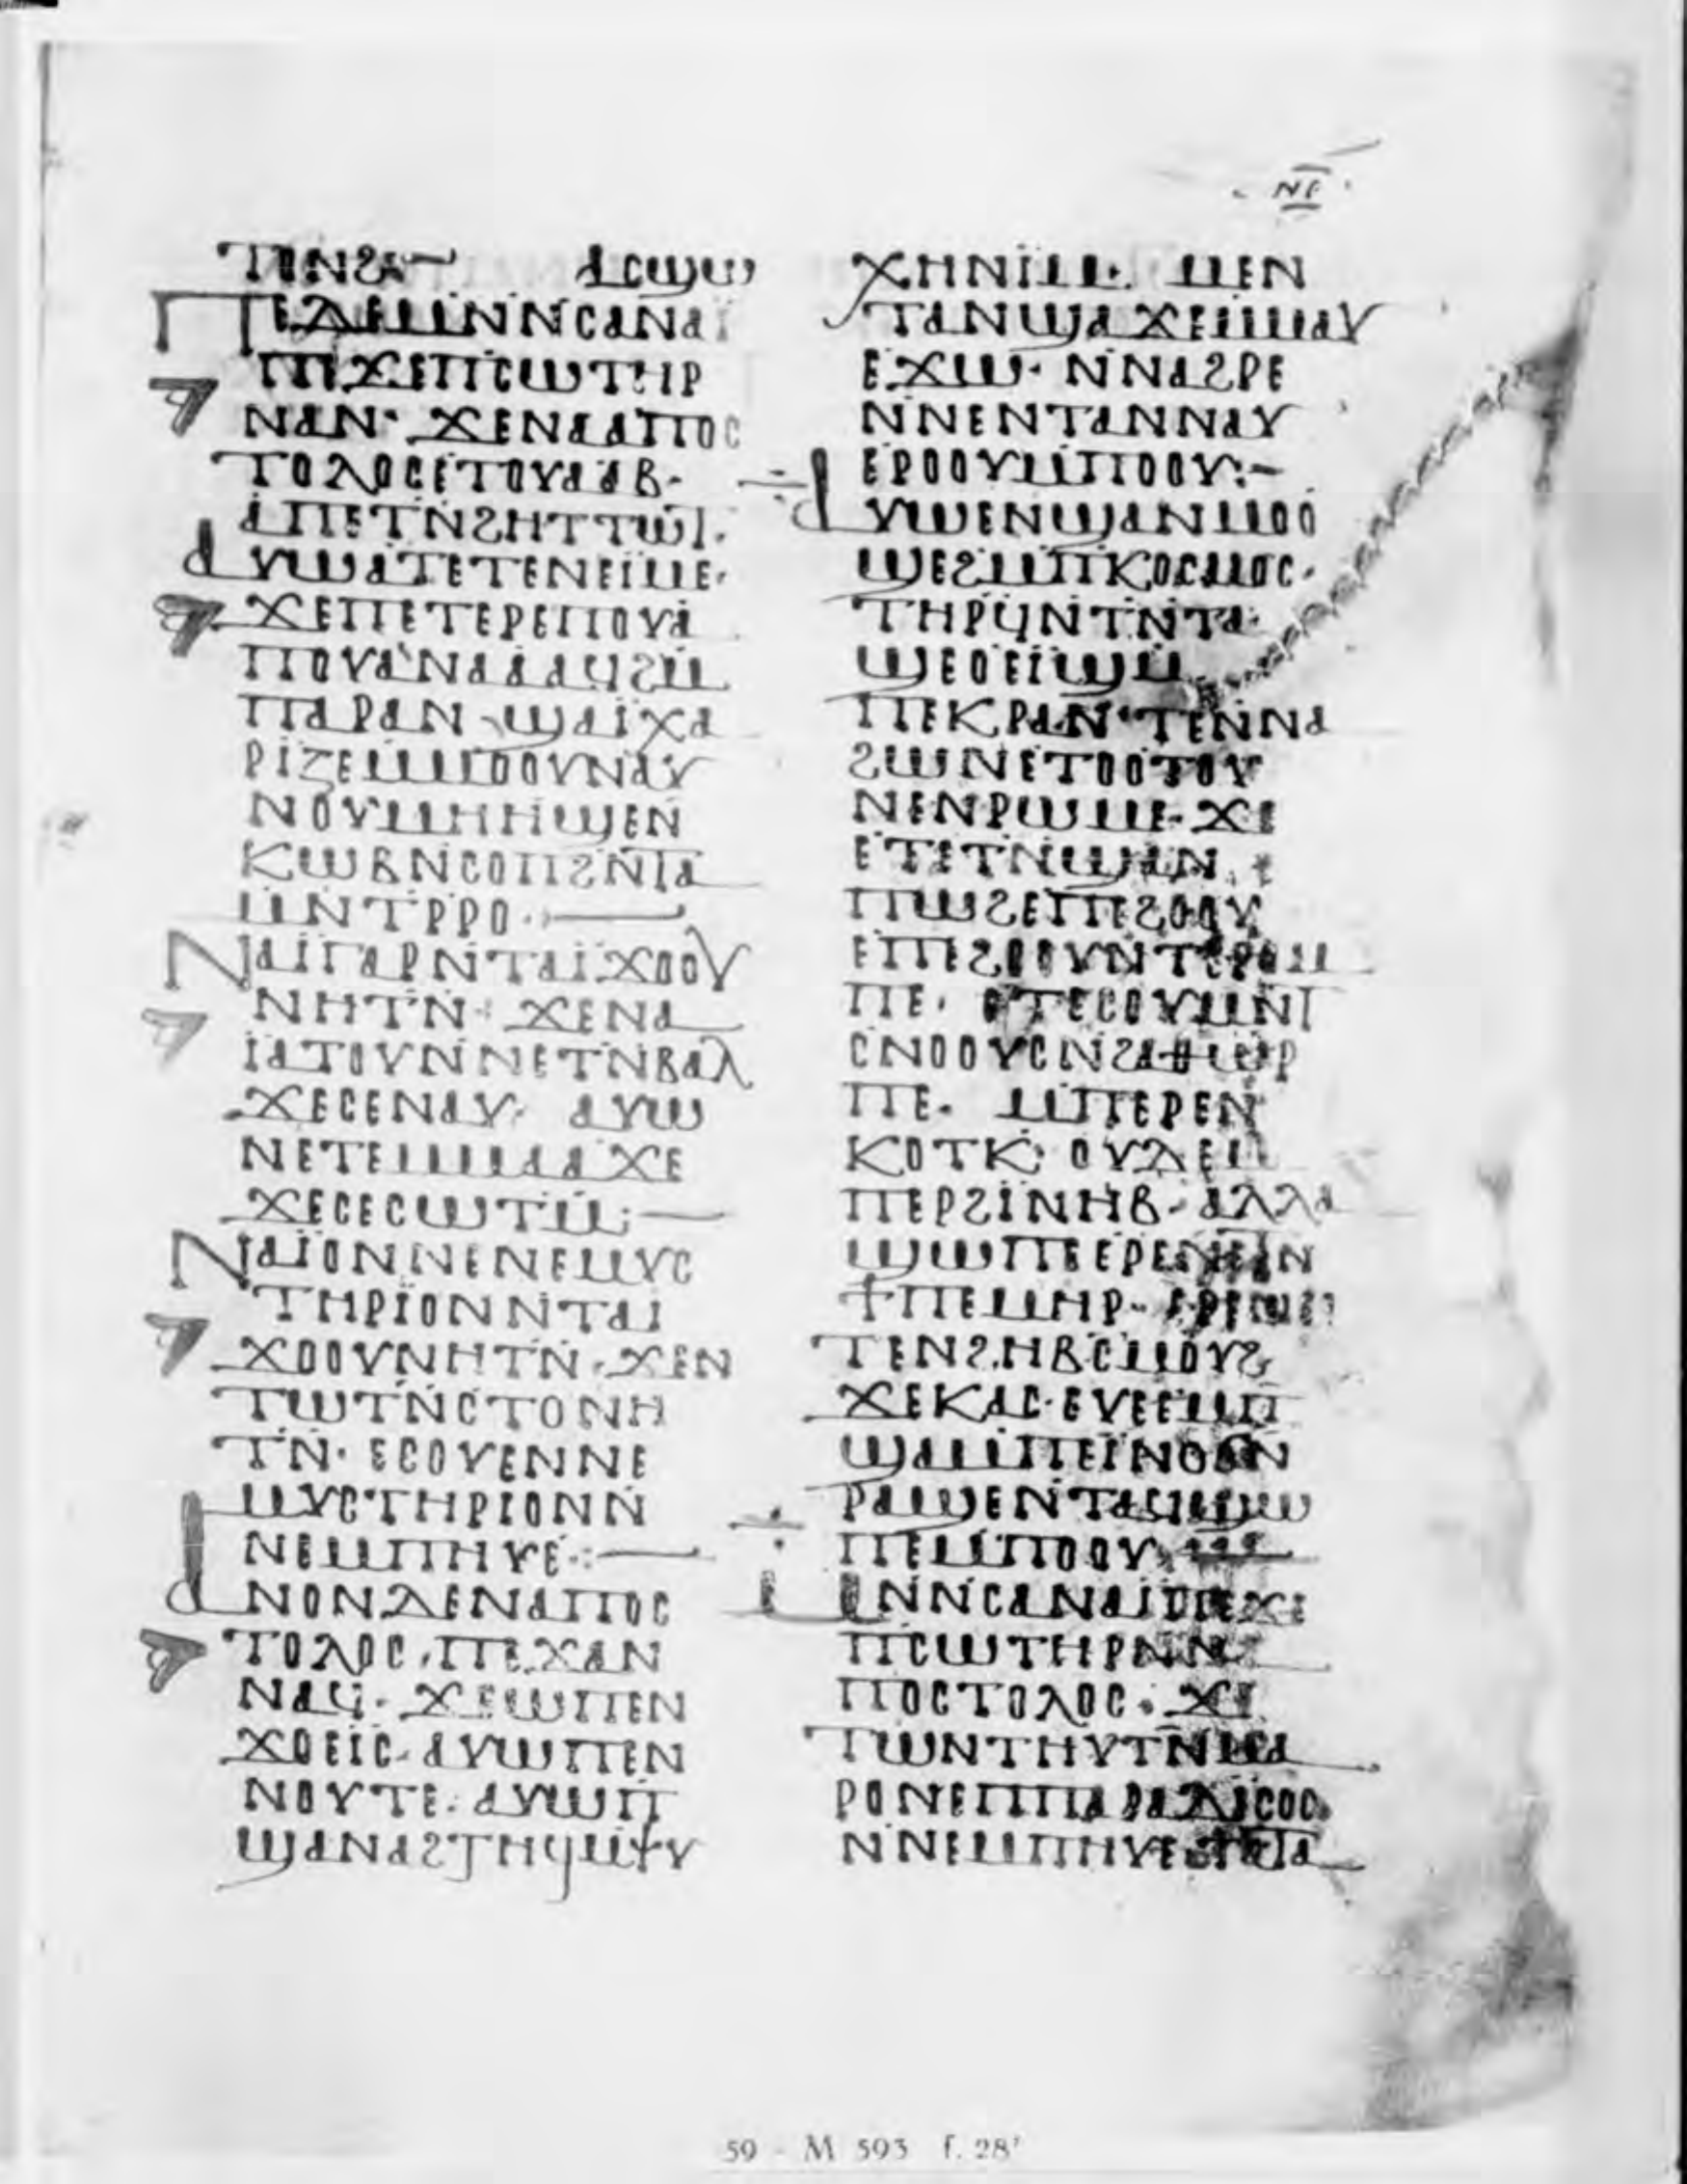 ⲛⲉ
ⲧⲟⲛϩ— ⲁⲥϣⲱ
ⲡⲉⲇⲉⲙⲛⲛⲥⲁⲛⲁⲓ
ⲡⲉϫⲉⲡⲥⲱⲧⲏⲣ
ⲛⲁⲛ· ϫⲉⲛⲁⲁⲡⲟⲥ
ⲧⲟⲗⲟⲥⲉⲧⲟⲩⲁⲁⲃ·
ⲁⲡⲉⲧⲛϩⲏⲧⲧⲱⲧ·
ⲁⲩⲱⲁⲧⲉⲧⲉⲛⲉⲓⲙⲉ·
ϫⲉⲡⲉⲧⲉⲣⲉⲡⲟⲩⲁ
ⲡⲟⲩⲁⲛⲁⲁⲁϥϩⲙ
ⲡⲁⲣⲁⲛ ϣⲁⲓⲭⲁ
ⲣⲓⲍⲉⲙⲙⲟⲟⲩⲛⲁⲩ
ⲛⲟⲩⲙⲏⲏϣⲉⲛ
ⲕⲱⲃⲛⲥⲟⲡϩⲛⲧⲁ
ⲙⲛⲧⲣⲣⲟ·—
ⲛⲁⲓⲅⲁⲣⲛⲧⲁⲓϫⲟⲟⲩ
ⲛⲏⲧⲛ· ϫⲉⲛⲁ
ⲓⲁⲧⲟⲩⲛⲛⲉⲧⲛⲃⲁⲗ
ϫⲉⲥⲉⲛⲁⲩ· ⲁⲩⲱ
ⲛⲉⲧⲉⲙⲙⲁⲁϫⲉ
ϫⲉⲥⲉⲥⲱⲧⲙ:—
ⲛⲁⲓⲟⲛⲛⲉⲛⲉⲙⲩⲥ
ⲧⲏⲣⲓⲟⲛⲛⲧⲁⲓ
ϫⲟⲟⲩⲛⲏⲧⲛ· ϫⲉⲛ
ⲧⲱⲧⲛⲥⲧⲟⲛⲏ
ⲧⲛ· ⲉⲥⲟⲩⲉⲛⲛⲉ
ⲙⲩⲥⲧⲏⲣⲓⲟⲛⲛ
ⲛⲉⲙⲡⲏⲩⲉ·:—
ⲁⲛⲟⲛⲇⲉⲛⲁⲡⲟⲥ
ⲧⲟⲗⲟⲥ·ⲡⲉϫⲁⲛ
ⲛⲁϥ· ϫⲉⲱⲡⲉⲛ
ϫⲟⲉⲓⲥ·ⲁⲩⲱⲡⲉⲛ
ⲛⲟⲩⲧⲉ·ⲁⲩⲱⲡ
ϣⲁⲛⲁϩⲧⲏϥⲙⲯⲩ
ⲭⲏⲛⲓⲙ· ⲙⲉⲛ
ⲧⲁⲛϣⲁϫⲉⲙⲙⲁⲩ
ⲉϫⲱ· ⲛⲛⲁϩⲣⲉ
ⲛⲛⲉⲛⲧⲁⲛⲛⲁⲩ
ⲉⲣⲟⲟⲩⲙⲡⲟⲟⲩ:—
ⲁⲩⲱⲉⲛϣⲁⲛⲙⲟⲟ
ϣⲉϩⲙⲡⲕⲟⲥⲙⲟⲥ·
ⲧⲏⲣϥⲛⲧⲛⲧⲁ
ϣⲉⲟⲉⲓϣⲙ
ⲡⲉⲕⲣⲁⲛ·ⲧⲉⲛⲛⲁ
ϩⲱⲛⲉⲧⲟⲟⲧⲟⲩ
ⲛⲉⲛⲣⲱⲙⲉ·ϫⲉ
ⲉⲧⲉⲧⲛϣⲁⲛ
ⲡⲱϩⲉⲡⲉϩⲟⲟⲩ
ⲉⲡⲉϩⲟⲟⲩⲛⲧⲉⲣⲟⲙ
ⲡⲉ· ⲉⲧⲉⲥⲟⲩⲙⲛⲧ
ⲥⲛⲟⲟⲩⲥⲛϩⲁⲑⲱⲣ
ⲡⲉ· ⲙⲡⲉⲣⲉⲛ
ⲕⲟⲧⲕ· ⲟⲩⲇⲉⲙ
ⲡⲉⲣϩⲓⲛⲏⲃ·ⲁⲗⲗⲁ
ϣⲱⲡⲉⲉⲣⲉⲛⲉⲧⲛ
ϯⲡⲉⲙⲏⲣ·
ⲧⲉⲛϩⲏⲃⲥⲙⲟⲩϩ
ϫⲉⲕⲁⲥ·ⲉⲩⲉⲉⲙⲡ
ϣⲁⲙⲡⲉⲓⲛⲟϭⲛ
ⲣⲁϣⲉⲛⲧⲁϥϣⲱ
ⲡⲉⲙⲡⲟⲟⲩ
ⲙⲛⲛⲥⲁⲛⲁⲓⲡⲉϫⲉ
ⲡⲥⲱⲧⲏⲣⲛⲛⲁ
ⲡⲟⲥⲧⲟⲗⲟⲥ· ϫⲉ
ⲧⲱⲛⲧⲏⲩⲧⲛⲙⲁ
ⲣⲟⲛⲉⲡⲡⲁⲣⲁⲇⲓⲥⲟⲥ
ⲛⲛⲉⲙⲡⲏⲩⲉ
59 - M 593 f. 28ʳ